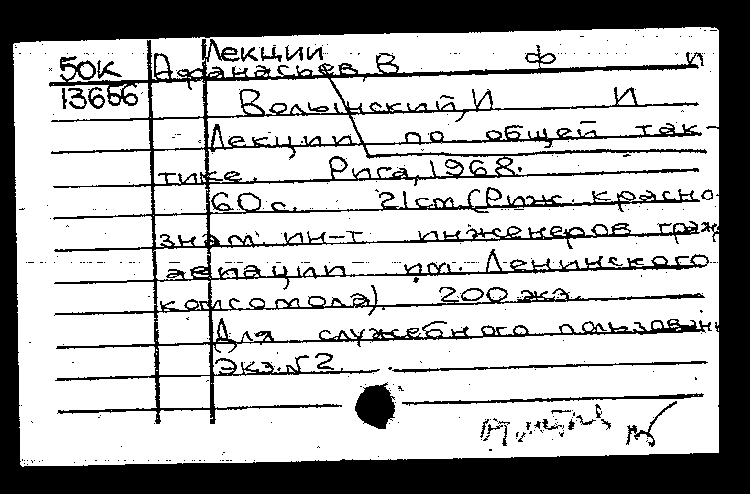 Лекции
50К Афанасьев, В Ф и
13656 Волынский, И И
Лекции по общей так-
тике. Рига, 1968.
60 с. 21 cm. (Риж. красно-
знам. ин-т инженеров граж
авиации им. Ленинского
комсомола). 200 экз.
Для служебного пользован
Экз. № 2